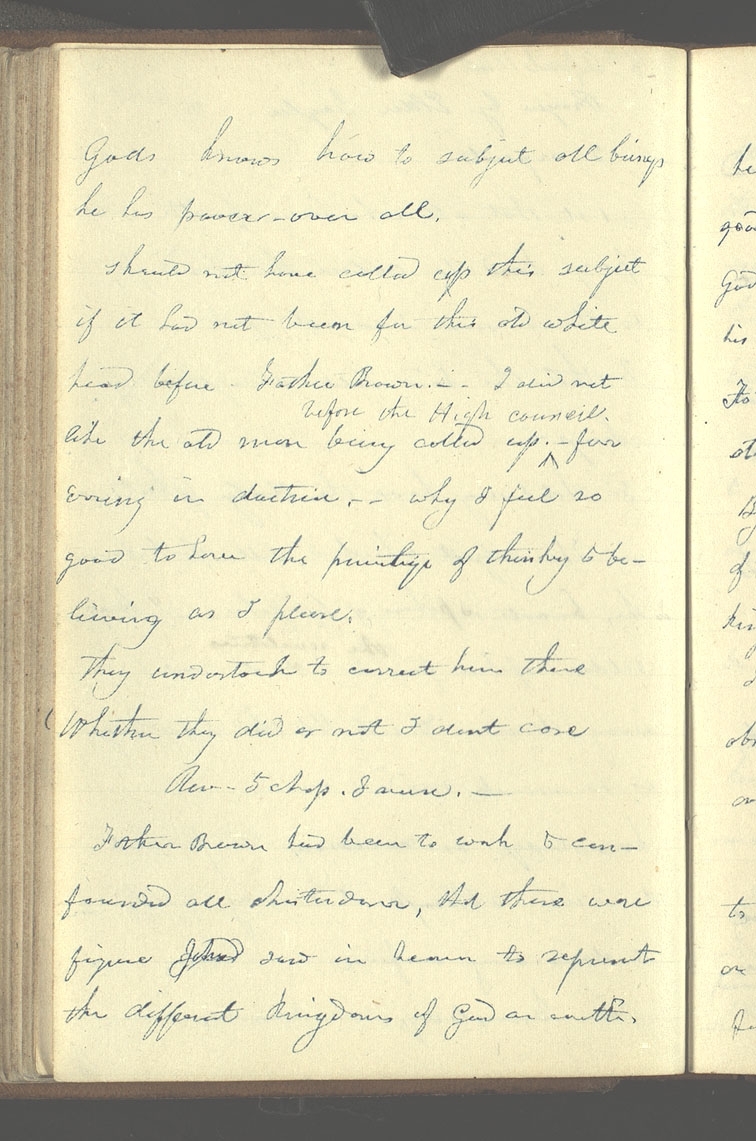 Gods knows how to subject all beings
he his power over all.
should not have called up this subject
if it had not been for this old white
head before - Father Brown. - - I did not
before the High council.
like the old man being called up. - for
erring in doctrine. - - why I feel so
good to have the privilige of thinking & be-
lieving as I please.
They undertook to correct him there
Whether they did or not I dont care
Rev - 5 chap. 8 verse. -
Father Brown had been to work & con-
founded all christendom, that these were
figure John saw in heaven to represent
the different kingdoms of God on earth.
he
good
God
his
of
to
on